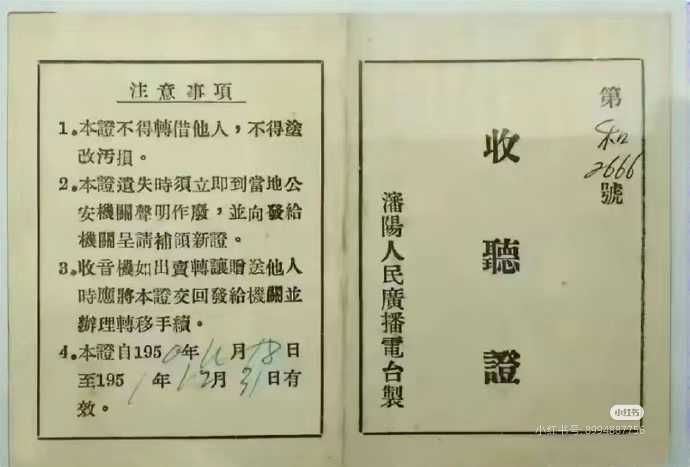 注意事項
1。本證不得轉借他人,不得塗
改汚損。
2。本證遺失時須立即到當地公
安機關聲明作廢,並向發給
機關呈請補領新證。
3。收音機如出賣轉讓贈送他人
時應將本證交回發給機關並
辦理轉移手續。
4。本證自1950年11月18日
至1951年12月31日有
效。
第
和
2666
號
收聽證
瀋陽人民廣播電台製
小红书
小红书号:8994887756